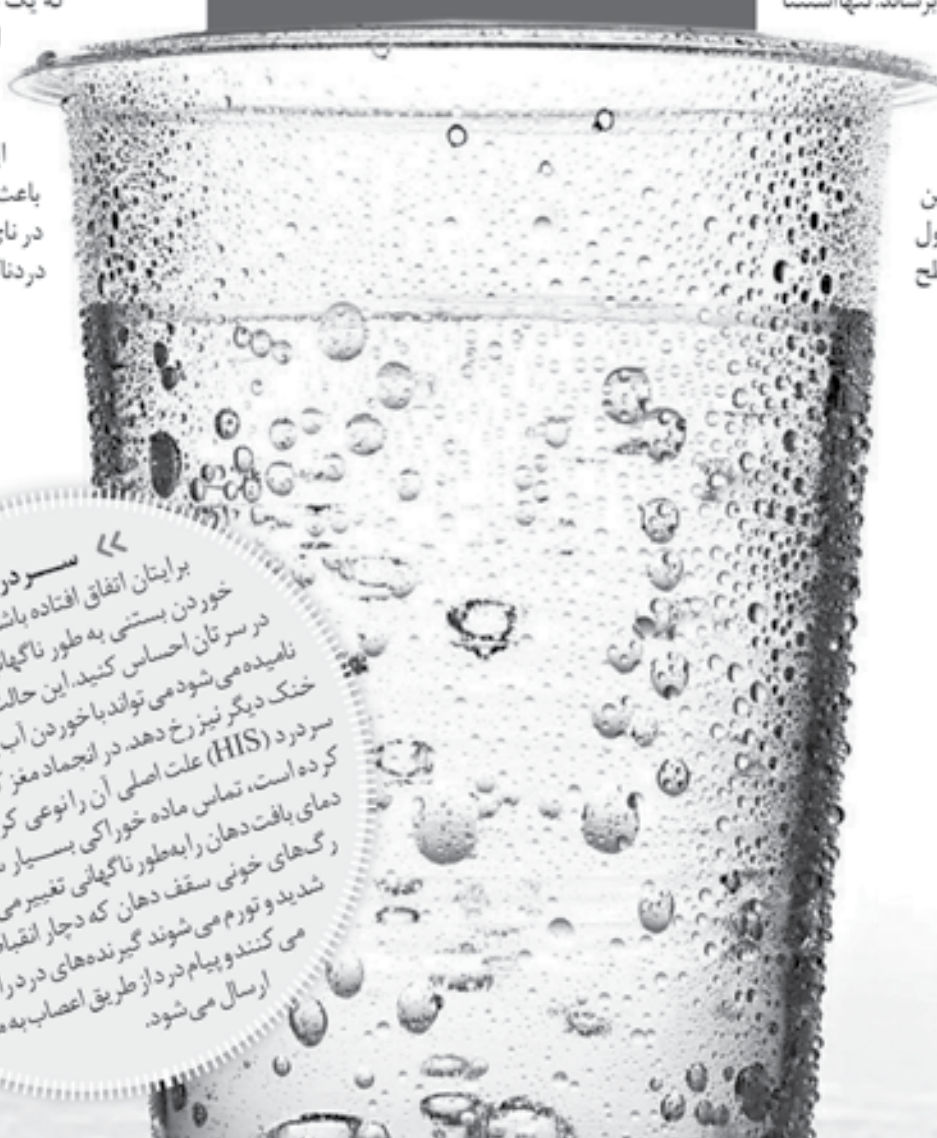 که یک
برساند. تنها استثنا
باعث
در نای
دردنا
ن
ول
طح
« ســردر
برایتان اتفاق افتاده باشد
خوردن بستنی به طور ناگهانی
در سرتان احساس کنید. این حالت
نامیده می‌شود می‌تواند با خوردن آب
خنک دیگر نیز رخ دهد. در انجماد مغز
سردرد (HIS) علت اصلی آن را نوعی
کرده است، تماس ماده خوراکی بســیار
دمای بافت دهان را به‌طور ناگهانی تغییر می
رگ‌های خونی سقف دهان که دچار انقبا
شدید و تورم می‌شوند گیرنده‌های درد را
می کنند و پیام درد از طریق اعصاب به
ارسال می‌شود.